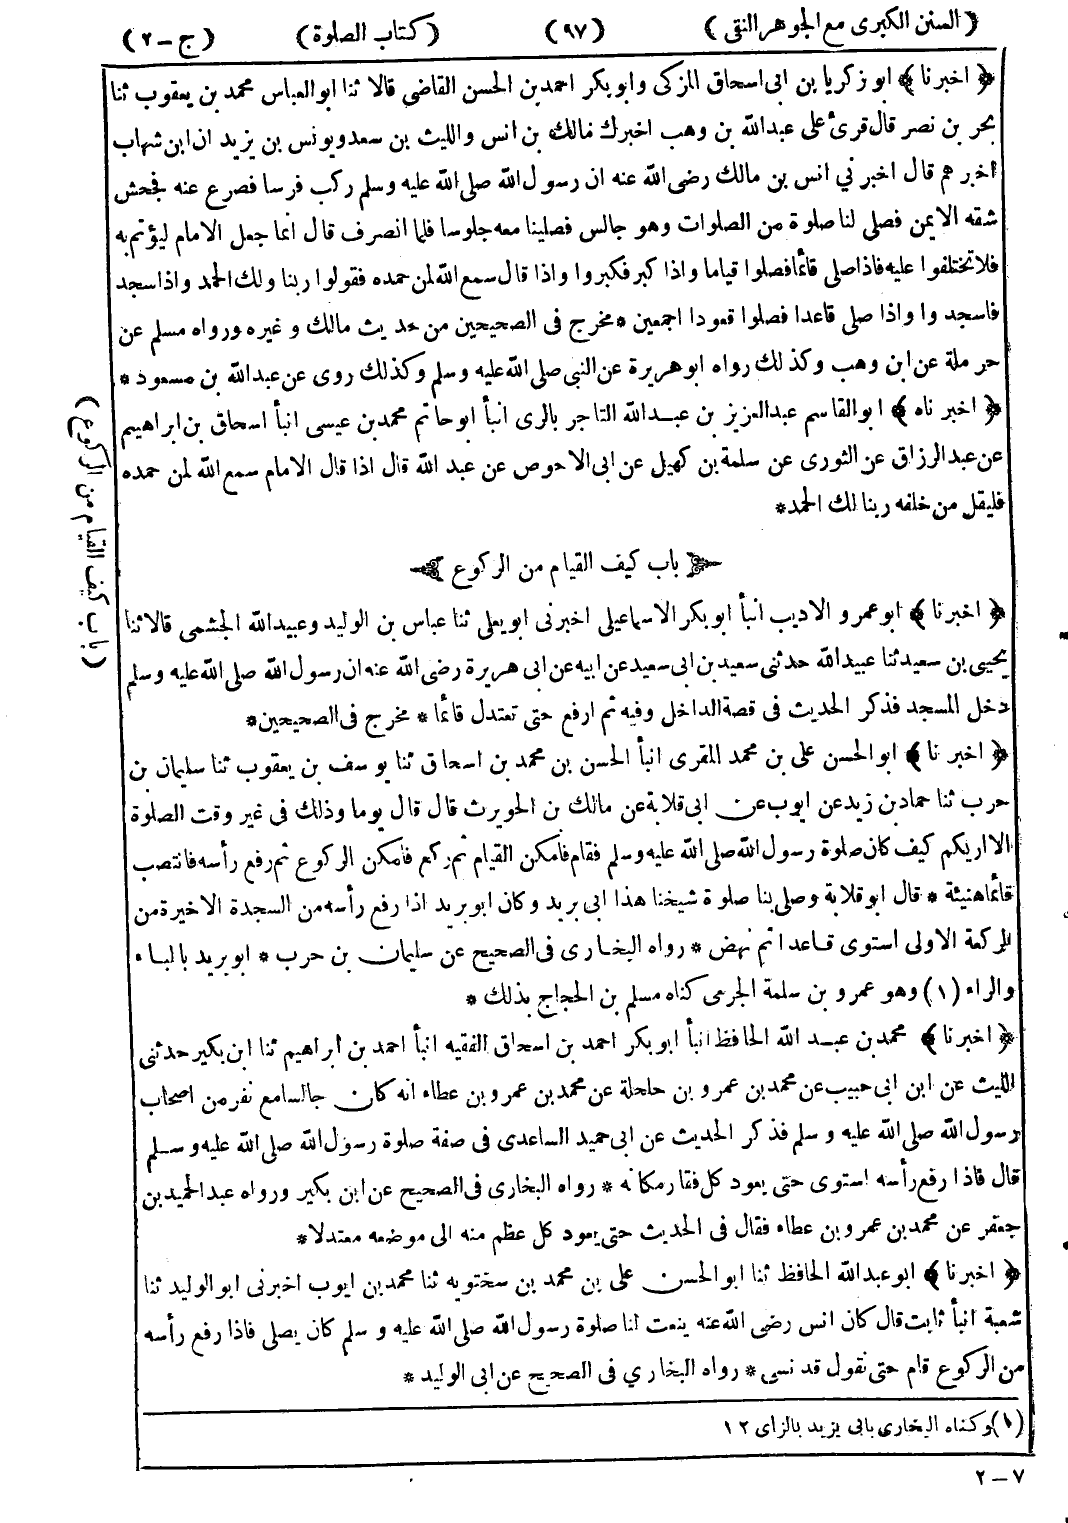 ﴿ السنن الكبرى مع الجوهر النقى ﴾ (٩٧) ﴿ كتاب الصلوة ﴾ ﴿ ج - ٢ ﴾
﴿ اخبرنا ﴾ ابو زكريا بن ابى اسحاق المزكى وابو بكر احمد بن الحسن القاضى قالا ثنا ابو العباس محمد بن يعقوب ثنا
بحر بن نصر قال قرئ على عبدالله بن وهب اخبرك مالك بن انس والليث بن سعد ويونس بن يزيد ان ابن شهاب
اخبرهم قال اخبرني انس بن مالك رضى الله عنه ان رسول الله صلى الله عليه وسلم ركب فرسا فصرع عنه فجحش
شقه الايمن فصلى لنا صلوة من الصلوات وهو جالس فصلينا معه جلوسا فلما انصرف قال انما جعل الامام ليؤتم به
فلا تختلفوا عليه فاذا صلى قائما فصلوا قياما واذا كبر فكبروا واذا قال سمع الله لمن حمده فقولوا ربنا ولك الحمد واذا سجد
فاسجدوا واذا صلى قاعدا فصلوا قعودا اجمعين * مخرج فى الصحيحين من حديث مالك و غيره ورواه مسلم عن
حرملة عن ابن وهب وكذلك رواه ابو هريرة عن النبي صلى الله عليه وسلم وكذلك روى عن عبدالله بن مسعود *
﴿ اخبرناه ﴾ ابو القاسم عبدالعزيز بن عبد الله التاجر بالرى انبأ ابو حاتم محمد بن عيسى انبأ اسحاق بن ابراهيم
عن عبد الرزاق عن الثورى عن سلمة بن كهيل عن ابى الاحوص عن عبد الله قال اذا قال الامام سمع الله لمن حمده
فليقل من خلفه ربنا لك الحمد *
باب كيف القيام من الركوع
﴿ باب كيف القيام من الركوع ﴾
﴿ اخبرنا ﴾ ابو عمرو الاديب انبأ ابو بكر الاسماعيلى اخبرنى ابو يعلى ثنا عباس بن الوليد وعبيدالله الجشمى قالا ثنا
يحيى بن سعيد ثنا عبيد الله حدثنى سعيد بن ابى سعيد عن ابيه عن ابى هريرة رضى الله عنه ان رسول الله صلى الله عليه وسلم
دخل المسجد فذكر الحديث فى قصة الداخل وفيه ثم ارفع حتى تعتدل قائما * مخرج فى الصحيحين *
﴿ اخبرنا ﴾ ابو الحسن على بن محمد المقرى انبأ الحسن بن محمد بن اسحاق ثنا يوسف بن يعقوب ثنا سليمان بن
حرب ثنا حماد بن زيد عن ايوب عن ابى قلابة عن مالك بن الحويرث قال قال يوما وذلك فى غير وقت الصلوة
الا اريكم كيف كان صلوة رسول الله صلى الله عليه وسلم فقام فامكن القيام ثم ركع فامكن الركوع ثم رفع رأسه فانتصب
قائما هنيئة * قال ابو قلابة وصلى بنا صلوة شيخنا هذا ابى بريد وكان ابو بريد اذا رفع رأسه من السجدة الاخيرة من
الركعة الاولى استوى قاعدا ثم نهض * رواه البخارى فى الصحيح عن سليمان بن حرب * ابو بريد بالباء
والراء (١) وهو عمرو بن سلمة الجرمى كناه مسلم بن الحجاج بذلك *
﴿ اخبرنا ﴾ محمد بن عبد الله الحافظ انبأ ابو بكر احمد بن اسحاق الفقيه انبأ احمد بن ابراهيم ثنا ابن بكير حدثنى
الليث عن ابن ابى حبيب عن محمد بن عمرو بن حلحلة عن محمد بن عمرو بن عطاء انه كان جالسا مع نفر من اصحاب
رسول الله صلى الله عليه و سلم فذكر الحديث عن ابى حميد الساعدى فى صفة صلوة رسول الله صلى الله عليه وسلم
قال فاذا رفع رأسه استوى حتى يعود كل فقار مكانه * رواه البخارى فى الصحيح عن ابن بكير ورواه عبد الحميد بن
جعفر عن محمد بن عمرو بن عطاء فقال فى الحديث حتى يعود كل عظم منه الى موضعه معتدلا *
﴿ اخبرنا ﴾ ابو عبدالله الحافظ ثنا ابو الحسن على بن محمد بن سختويه ثنا محمد بن ايوب اخبرنى ابو الوليد ثنا
شعبة انبأ ثابت قال كان انس رضى الله عنه ينعت لنا صلوة رسول الله صلى الله عليه و سلم كان يصلى فاذا رفع رأسه
من الركوع قام حتى نقول قد نسى * رواه البخاري فى الصحيح عن ابى الوليد *
(١) وكناه البخارى بابى يزيد بالزاى ١٢
٢ - ٧